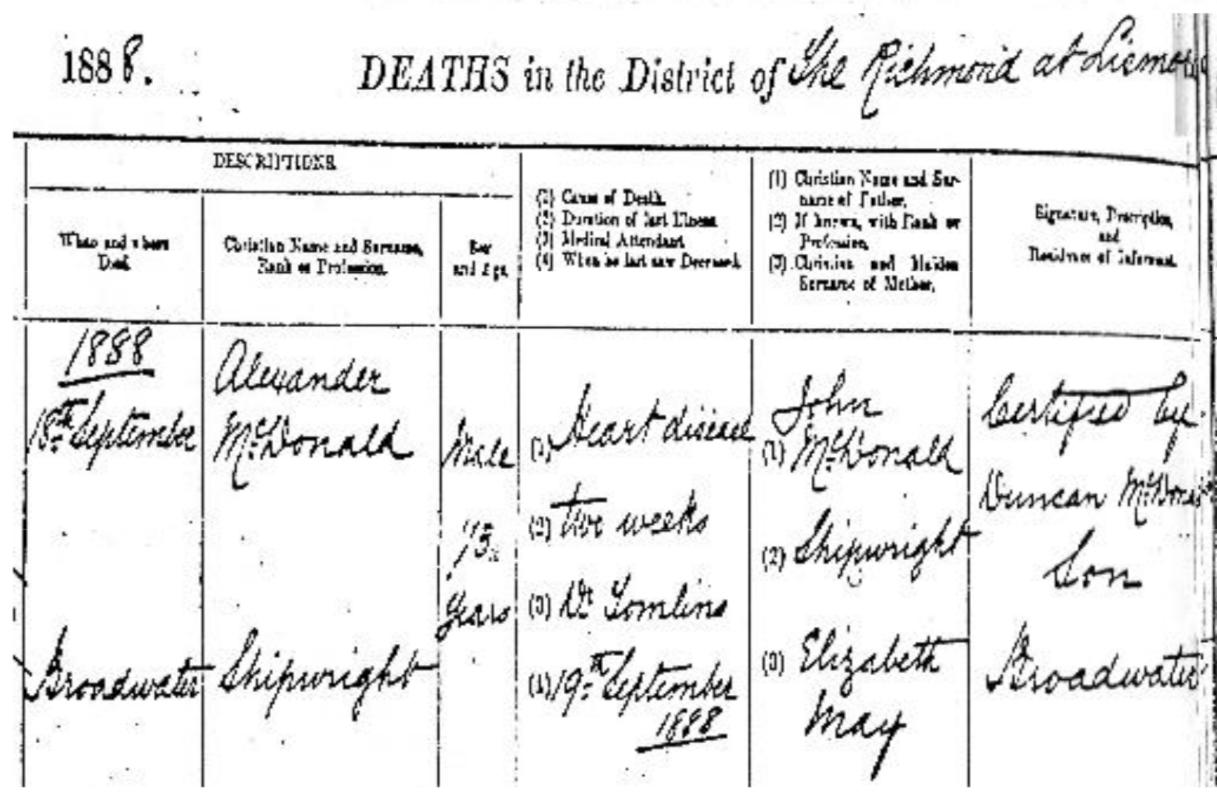 1888. DEATHS in the District of The Richmond at Lismore
DESCRIPTIONS.
When and where
Died.
Christian Name and Surname,
Rank or Profession.
Sex
and Age.
(1) Cause of Death.
(2) Duration of last Illness.
(3) Medical Attendant.
(4) When he last saw Deceased.
(1) Christian Name and Sur-
name of Father.
(2) If known, with Rank or
Profession.
(3) Christian and Maiden
Surname of Mother.
Signature, Description,
and
Residence of Informant.
1888
18th September
Broadwater
Alexander
McDonald
Shipwright
Male
Years
(1) Heart disease
(2) two weeks
(3) Dr Tomlins
(4) 19th September
1888
John
(1) McDonald
(2) Shipwright
(3) Elizabeth
May
Certified by
Duncan McDonald
Son
Broadwater